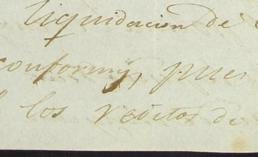 liquidacion de
conforme, pues
los reditos de